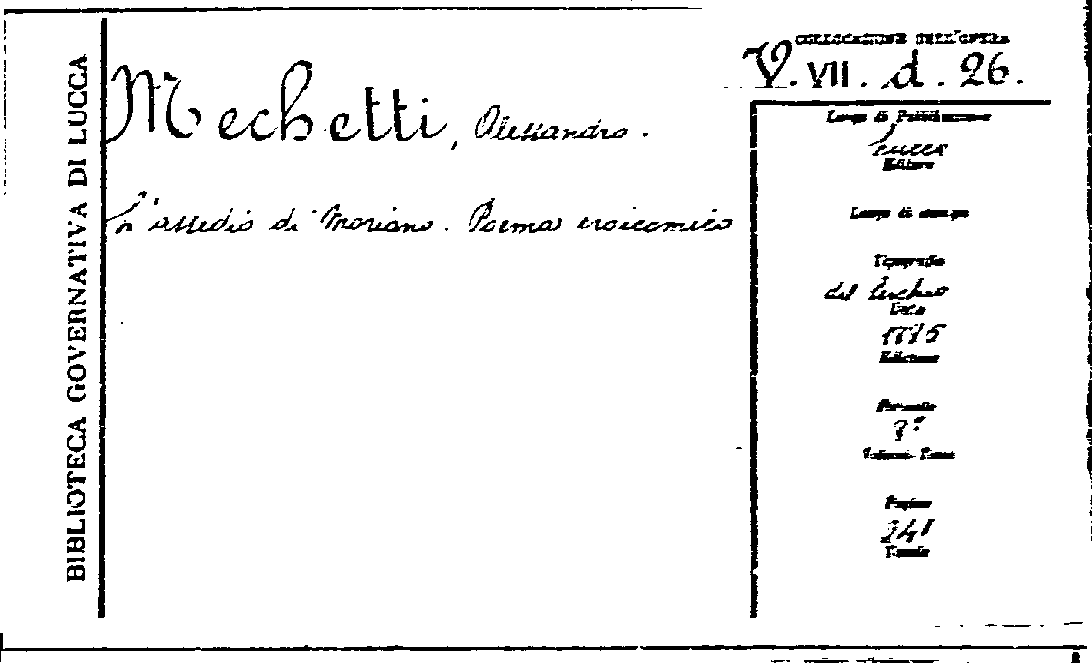 BIBLIOTECA GOVERNATIVA DI LUCCA
COLLOCAZIONE DELL'OPERA
V. VII. d. 26.
Mechetti, Alessandro.
L'assedio di Moriano. Poema eroicomico
Luogo di Pubblicazione
Lucca
Editore
Luogo di stampa
Tipografia
del
Data
Edizione
Formato
8°
Pagine
241